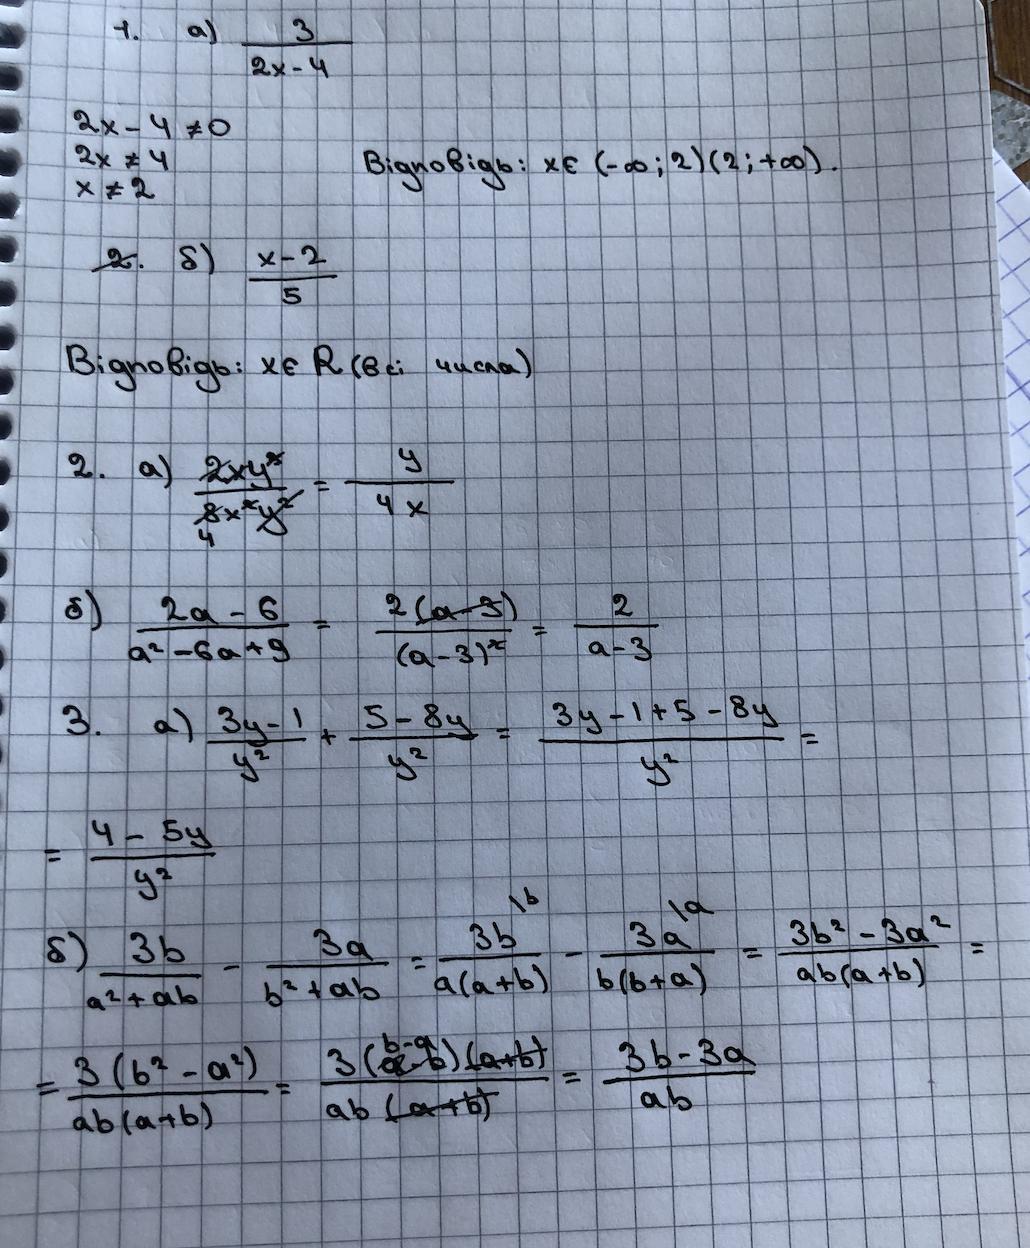 1. а) 3/(2x-4)
2x - 4 ≠ 0
2x ≠ 4
x ≠ 2
Відповідь: x∈ (-∞; 2)(2; +∞).
2. б) (x-2)/5
Відповідь: x∈ R (всі числа)
2. а) 2xy³/8x²y² = y/4x
4
б) (2a - 6)/(a² - 6a + 9) = 2(a-3)/(a-3)² = 2/(a-3)
3. а) (3y-1)/y² + (5-8y)/y² = (3y-1+5-8y)/y² =
= (4-5y)/y²
б) 3b/(a²+ab) - 3a/(b²+ab) = 3b\b/a(a+b) - 3a\a/b(b+a) = (3b²-3a²)/ab(a+b) =
= 3(b²-a²)/ab(a+b) = 3(b-a)(a+b)/ab(a+b) = (3b-3a)/ab